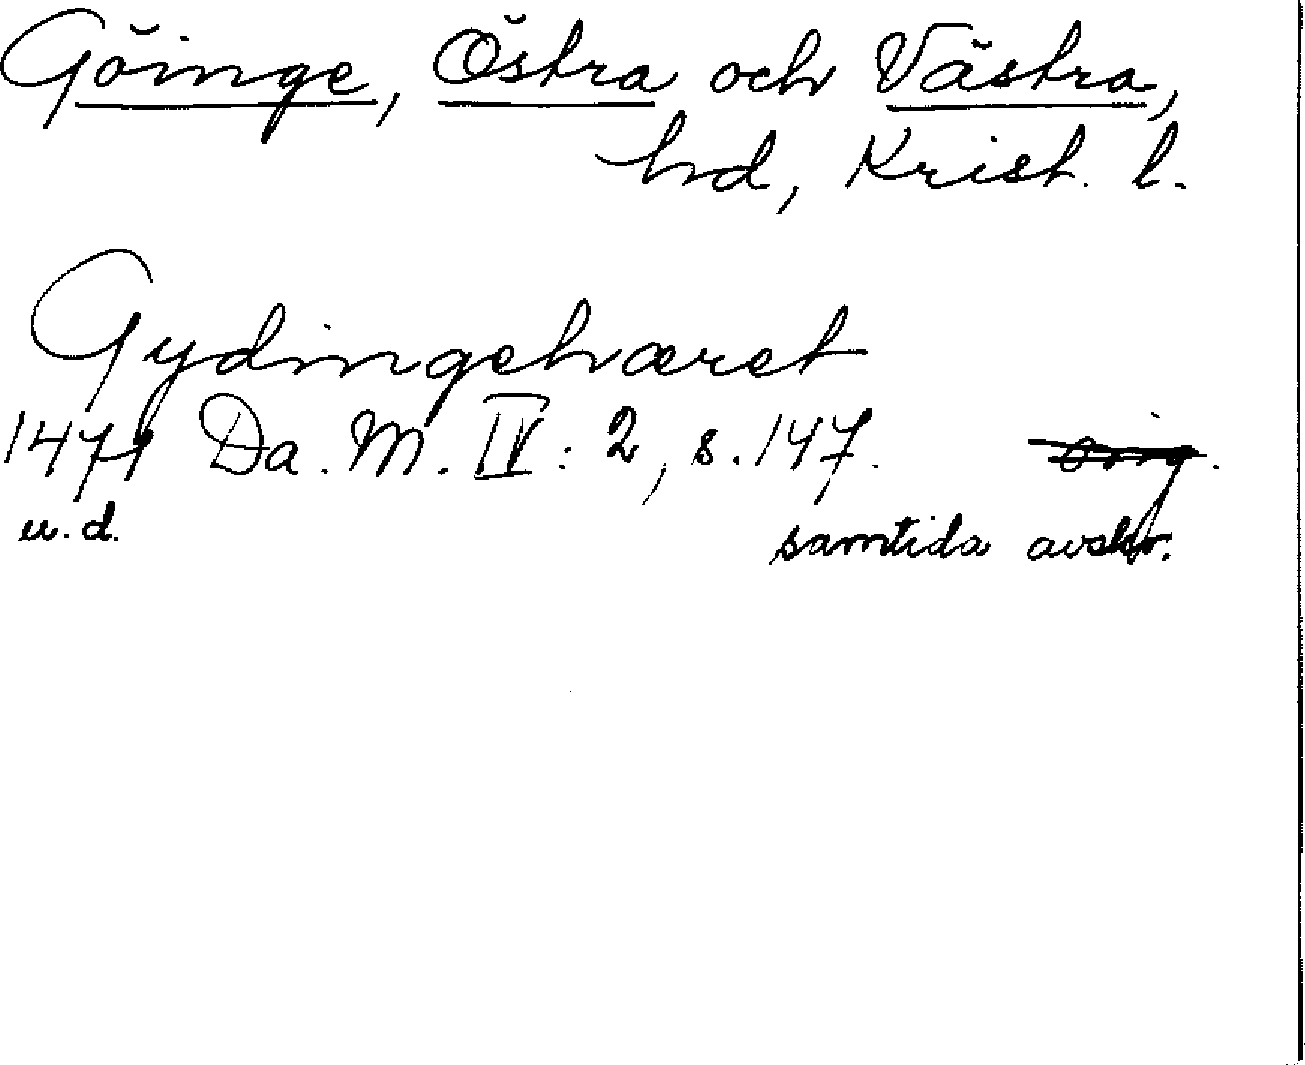 Göinge, Östra och Västra,
hd, Krist. l.
Gydingehæret
1471 Da. M. IV: 2, s. 147. orig.
u.d. samtida avskr.